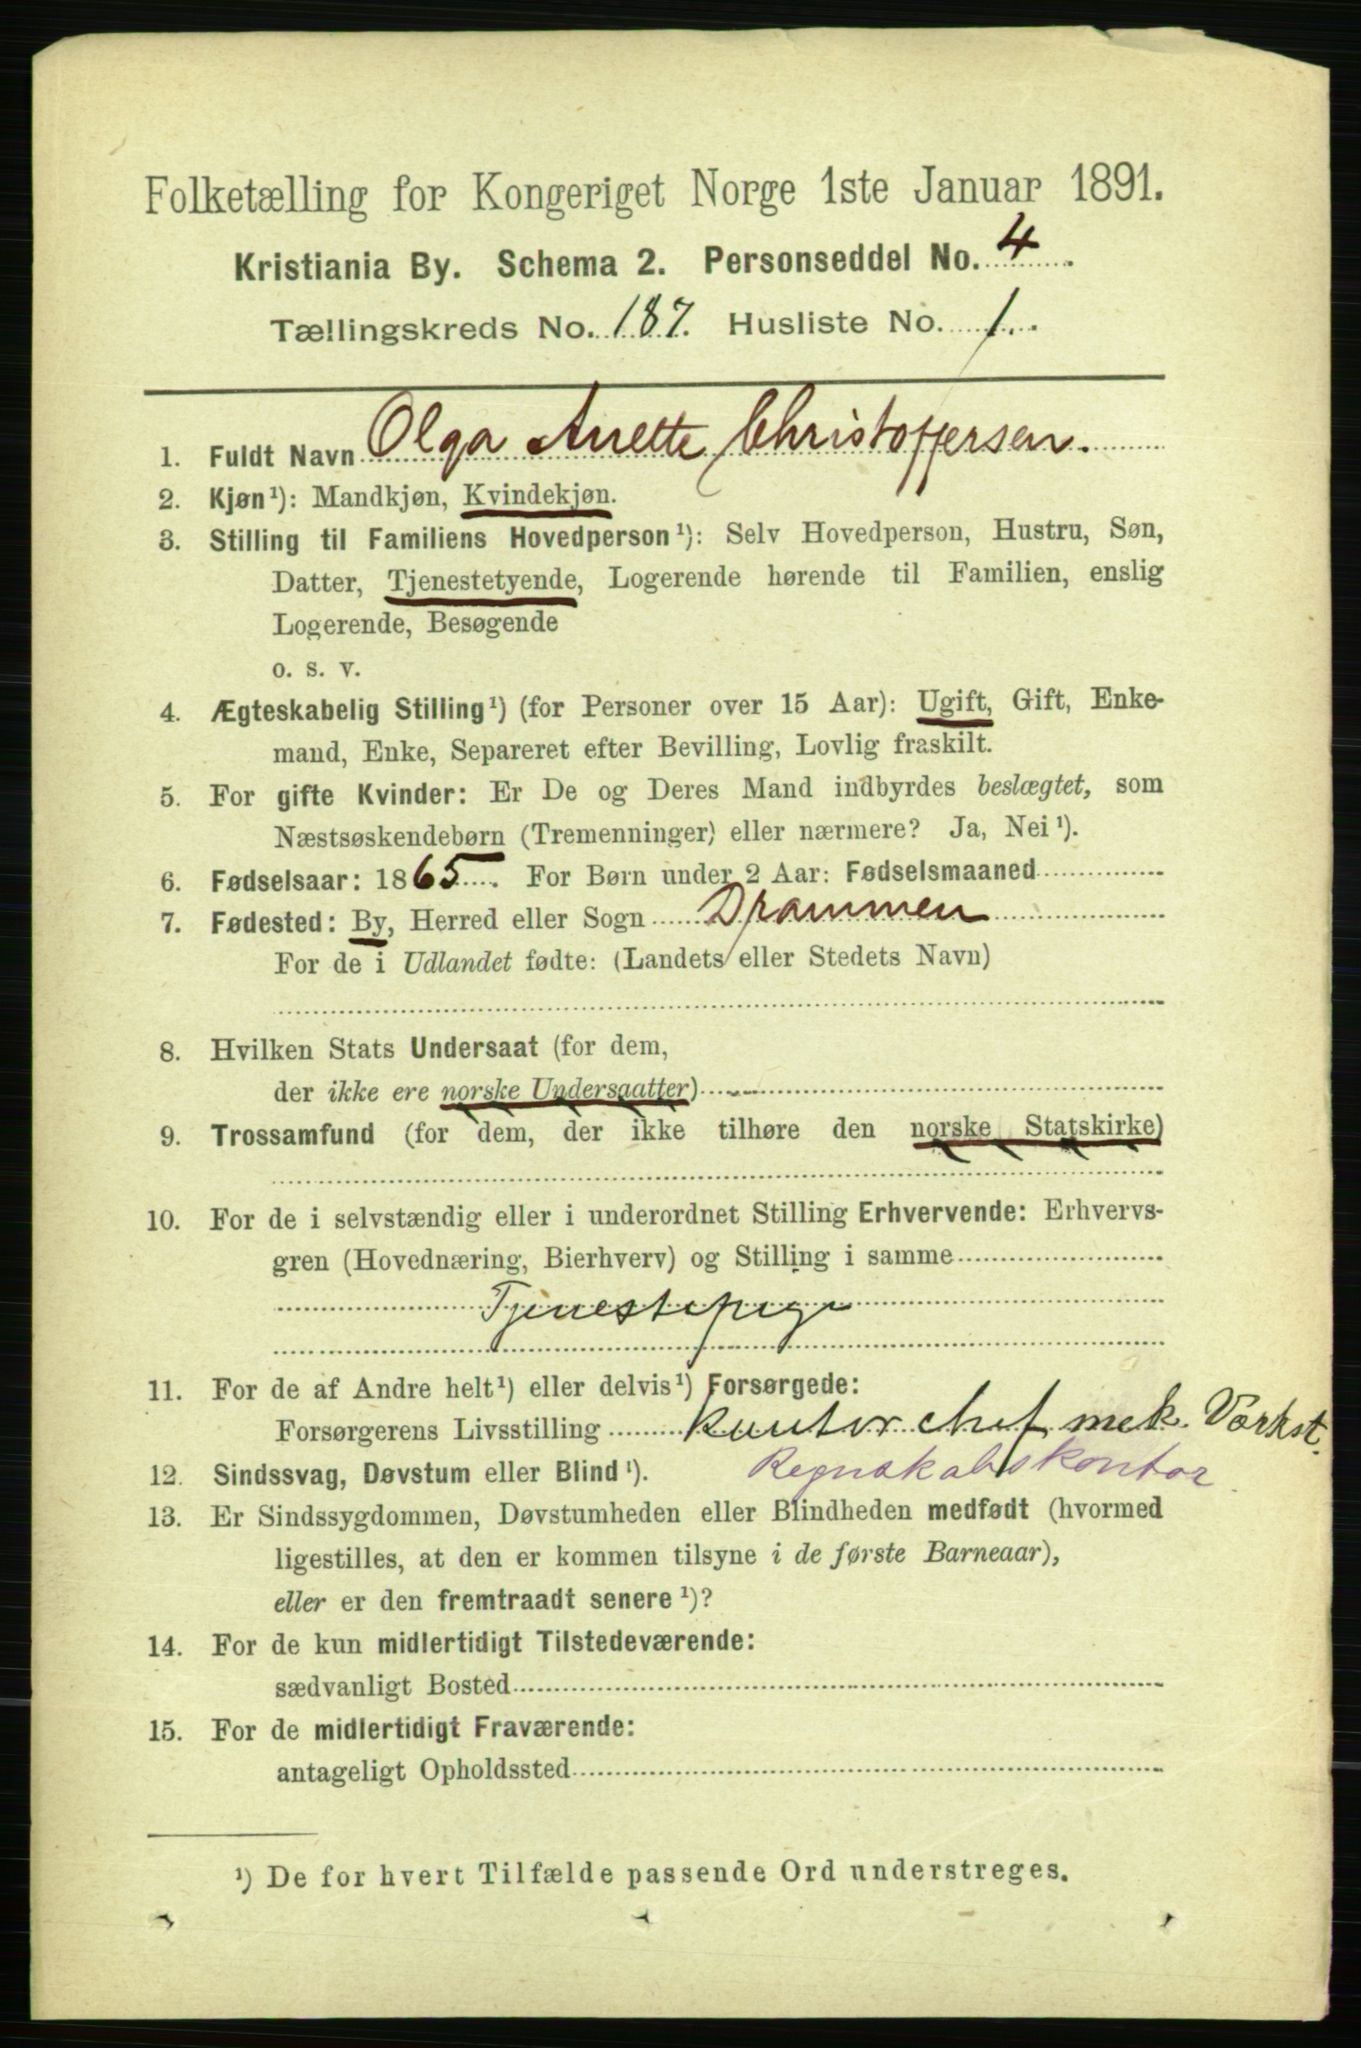 Folketælling for Kongeriget Norge 1ste Januar 1891.
Kristiania By. Schema 2. Personseddel No. 4
Tællingskreds No. 187. Husliste No. 1.
1. Fuldt Navn Olga Anette Christoffersen.
2. Kjøn¹): Mandkjøn, Kvindekjøn.
3. Stilling til Familiens Hovedperson¹): Selv Hovedperson, Hustru, Søn,
Datter, Tjenestetyende, Logerende hørende til Familien, enslig
Logerende, Besøgende
o. s. v.
4. Ægteskabelig Stilling¹) (for Personer over 15 Aar): Ugift, Gift, Enke-
mand, Enke, Separeret efter Bevilling, Lovlig fraskilt.
5. For gifte Kvinder: Er De og Deres Mand indbyrdes beslægtet, som
Næstsøskendebørn (Tremenninger) eller nærmere? Ja, Nei¹).
6. Fødselsaar: 1865. For Børn under 2 Aar: Fødselsmaaned
7. Fødested: By, Herred eller Sogn Drammen
For de i Udlandet fødte: (Landets eller Stedets Navn)
8. Hvilken Stats Undersaat (for dem,
der ikke ere norske Undersaatter)
9. Trossamfund (for dem, der ikke tilhøre den norske Statskirke)
10. For de i selvstændig eller i underordnet Stilling Erhvervende: Erhvervs-
gren (Hovednæring, Bierhverv) og Stilling i samme
Tjenestepige
11. For de af Andre helt¹) eller delvis¹) Forsørgede:
Forsørgerens Livsstilling Kontorchef mek. Værkst.
12. Sindssvag, Døvstum eller Blind¹). Regnskabskontor
13. Er Sindssygdommen, Døvstumheden eller Blindheden medfødt (hvormed
ligestilles, at den er kommen tilsyne i de første Barneaar),
eller er den fremtraadt senere¹)?
14. For de kun midlertidigt Tilstedeværende:
sædvanligt Bosted
15. For de midlertidigt Fraværende:
antageligt Opholdssted
¹) De for hvert Tilfælde passende Ord understreges.